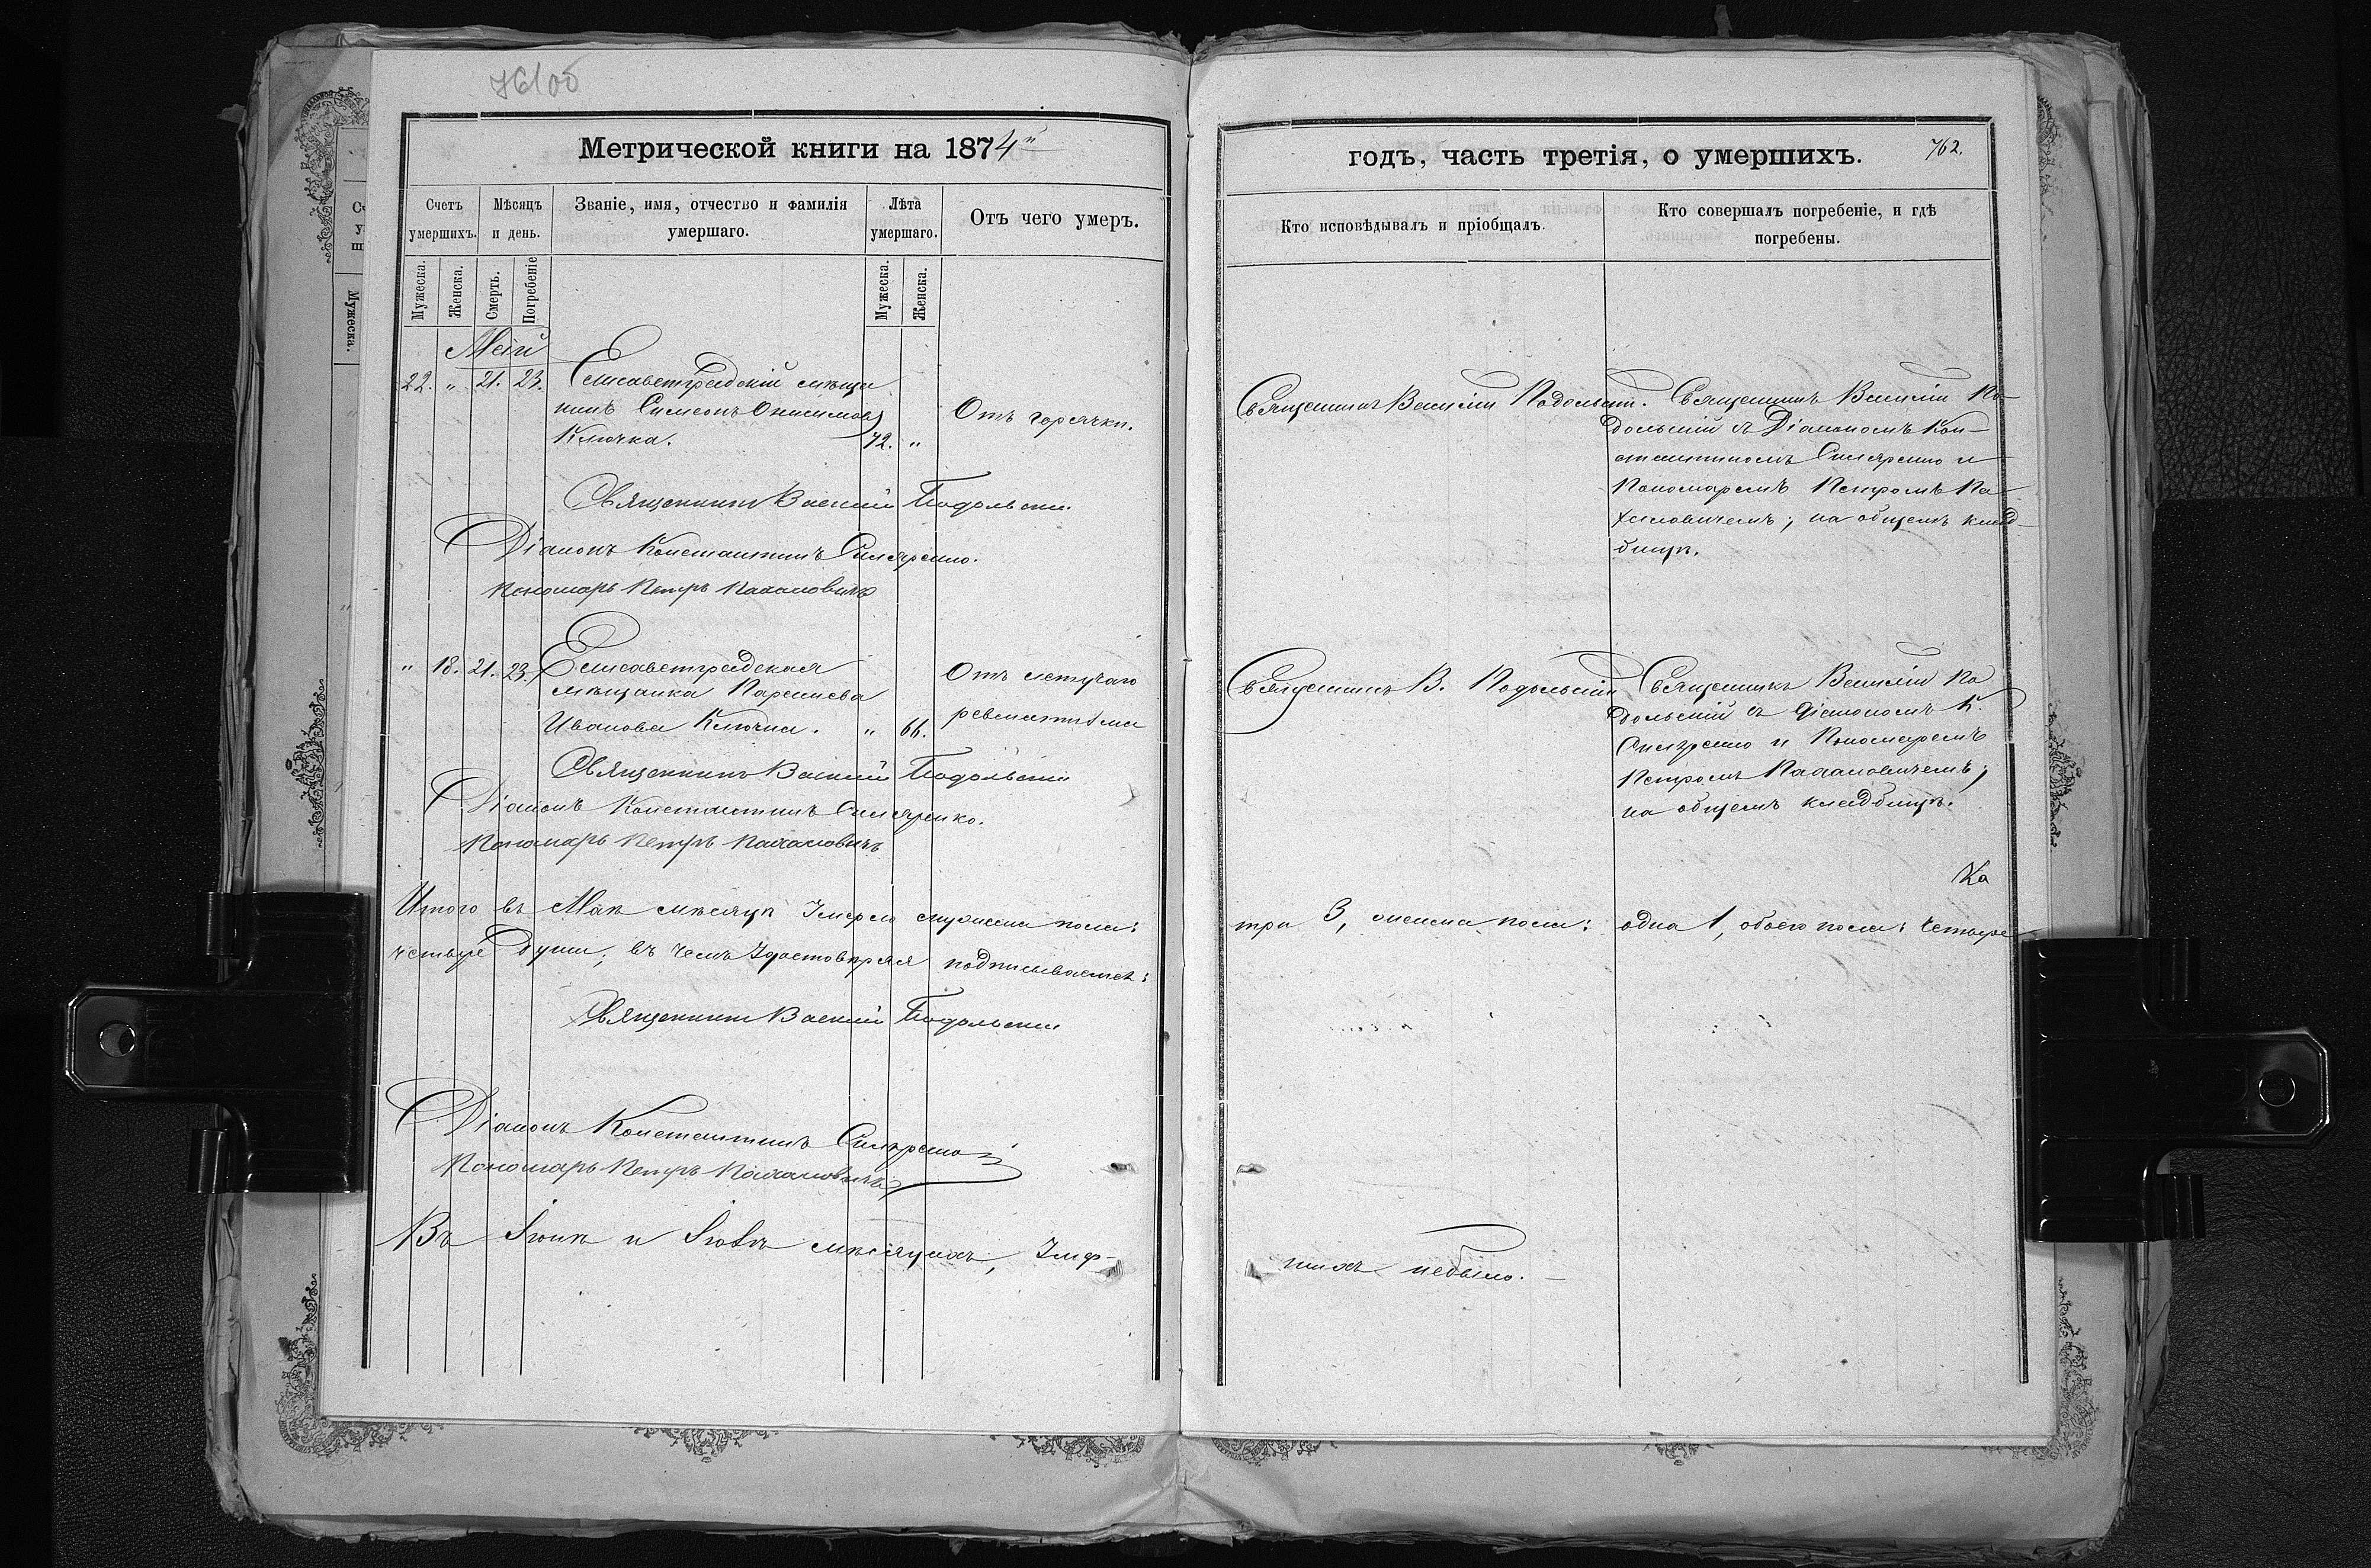 761об
Метрической книги на 1874й
Счетъ умершихъ.
Мѣсяцъ и день.
Званіе, имя, отчество и фамилія умершаго.
Лѣта умершаго.
Отъ чего умеръ.
Мужеска.
Женска.
Смерть.
Погребеніе
Мужеска.
Женска.
Май
22. " 21. 23. Елисаветградскій мѣща
нинъ Симеонъ Онисимовъ
Ключка. 72. "
Отъ горячки.
Священникъ Василій Подольскій
Діаконъ Константинъ Скляренко.
Пономарь Петръ Пахаловичъ
" 18. 21. 23. Елисаветградская
мѣщанка Параскева
Иванова Ключка. " 66.
Отъ летучаго
ревматизма
Священникъ Василій Подольскій
Діаконъ Константинъ Скляренко.
Пономарь Петръ Пахаловичъ
Итого въ Маѣ мѣсяцѣ умерло мужеска пола:
четыре души; въ чемъ удостовѣряя подписываемся:
Священникъ Василій Подольскій
Діаконъ Константинъ Скляренко
Пономарь Петръ Пахаловичъ
Въ Іюнѣ и Іюлѣ мѣсяцахъ, умер-
годъ, часть третія, о умершихъ.
762.
Кто исповѣдывалъ и пріобщалъ.
Кто совершалъ погребеніе, и гдѣ погребены.
Священникъ Василій Подольскій.
Священникъ Василій По-
дольскій съ Діакономъ Кон-
стантиномъ Скляренко и
Пономаремъ Петромъ Па-
халовичемъ; на общемъ клад-
бищѣ.
Священникъ В. Подольскій
Священникъ Василій По
дольскій съ Діакономъ К.
Скляренко и Пономаремъ
Петромъ Пахаловичемъ;
на общемъ кладбищѣ.
три 3, женска пола: одна 1, обоего пола: четыре
шихъ небыло.